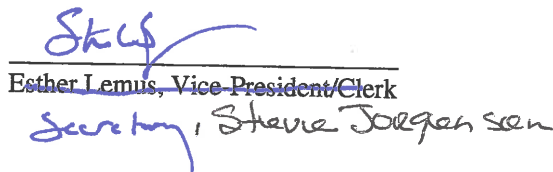 Esther Lemus, Vice-President/Clerk
Secretary, Stevie Jorgensen